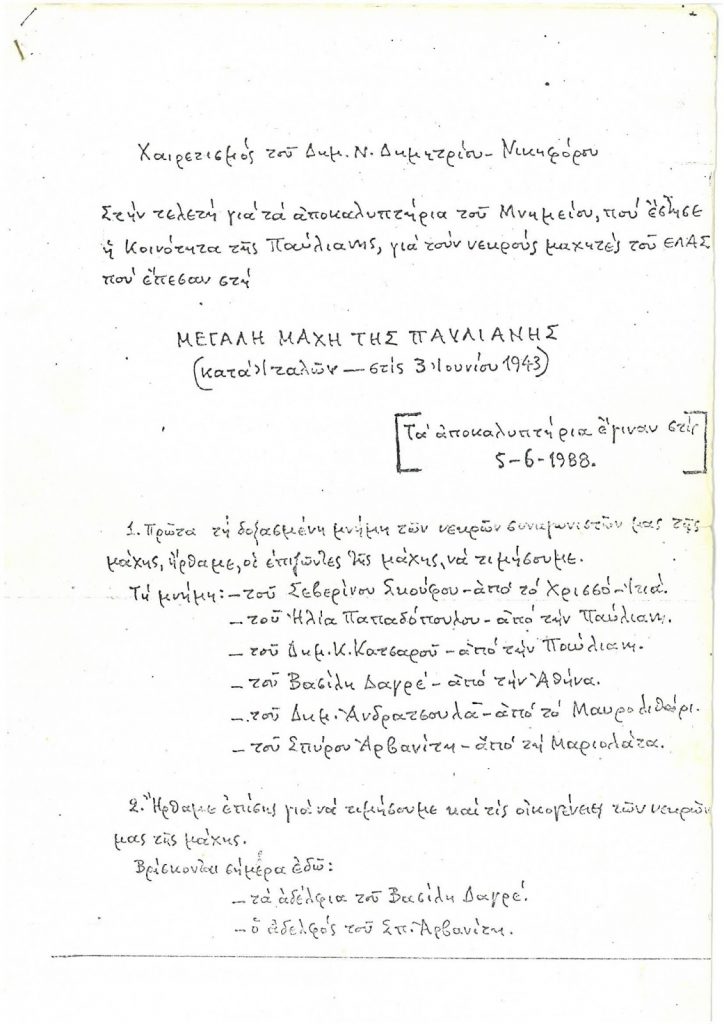 Χαιρετισμός τοῦ Δημ. Ν. Δημητρίου - Νικηφόρου
Στήν τελετή γιά τά ἀποκαλυπτήρια τοῦ Μνημείου, πού ἔστησε
ἡ Κοινότητα τῆς Παύλιανης, γιά τούς νεκρούς μαχητές τοῦ ΕΛΑΣ
πού ἔπεσαν στή
ΜΕΓΑΛΗ ΜΑΧΗ ΤΗΣ ΠΑΥΛΙΑΝΗΣ
(κατά Ἰταλῶν — στίς 3 Ἰουνίου 1943)
[Τά ἀποκαλυπτήρια ἔγιναν στίς
5-6-1988.]
1. Πρῶτα τή δοξασμένη μνήμη τῶν νεκρῶν συναγωνιστῶν μας τῆς
μάχης, ἤρθαμε, οἱ ἐπιζῶντες τῆς μάχης, νά τιμήσουμε.
Τή μνήμη: - τοῦ Σεβερίνου Σκούφου - ἀπό τό Χρισσό - Ἰτιά.
- τοῦ Ἠλία Παπαδόπουλου - ἀπό τήν Παύλιανη.
- τοῦ Δημ. Κ. Κατσαροῦ - ἀπό τήν Παύλιανη.
- τοῦ Βασίλη Δαγρέ - ἀπό τήν Ἀθήνα.
- τοῦ Δημ. Ἀνδρατσουλᾶ - ἀπό τό Μαυρολιθάρι.
- τοῦ Σπύρου Ἀρβανίτη - ἀπό τή Μαριολάτα.
2. Ἤρθαμε ἐπίσης γιά νά τιμήσουμε καί τίς οἰκογένειες τῶν νεκρῶν
μας τῆς μάχης.
Βρίσκονται σήμερα ἐδῶ:
- τά ἀδέλφια τοῦ Βασίλη Δαγρέ.
- ὁ ἀδελφός τοῦ Σπ. Ἀρβανίτη.